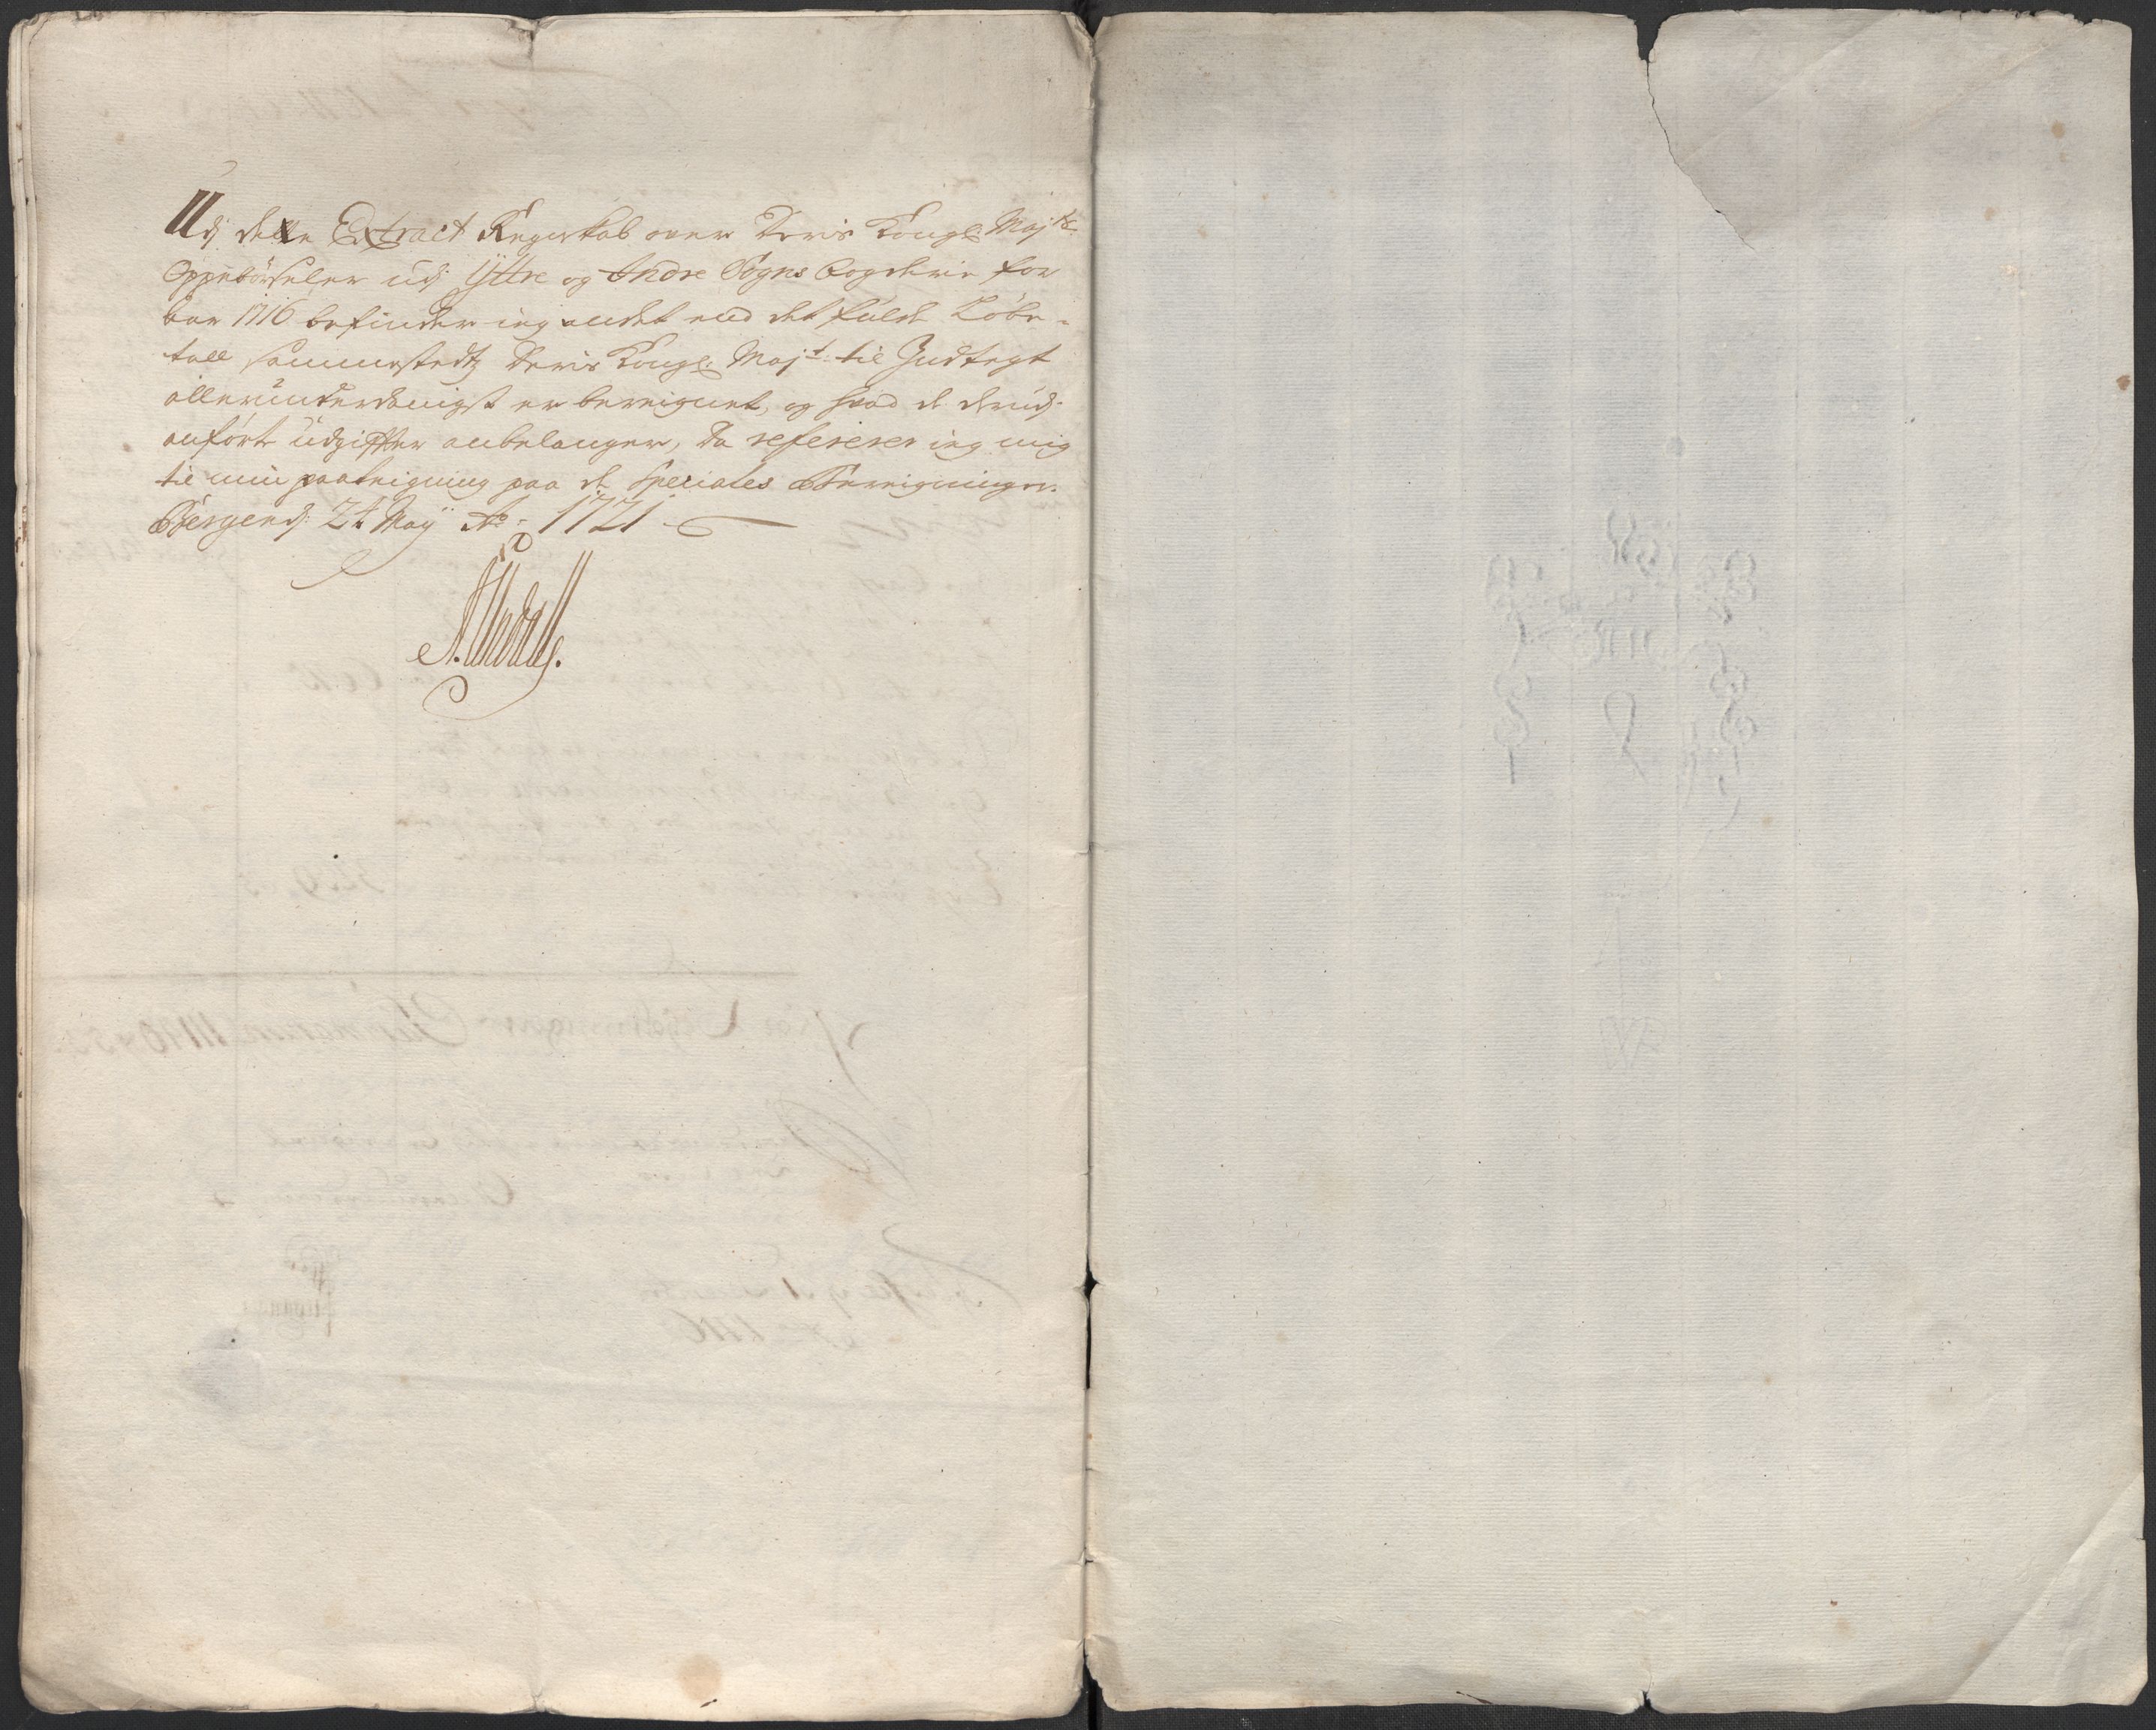 Udj dette Extract Regnskab over Deris Kongl: Majts:
Oppebørseler udj Ÿttre og Indre Sogns Fogderie for
aar 1716 befinder ieg andet end det fulde Løbe-
tall sammestedtz Deris Kongl: Majt: til Indtegt
allerunderdanigst er bereignet, og hvad de derudj
anførte udgiffter anbelanger, da refererer ieg mig
til min paateigning paa de Speciales Bereigninger.
Bergen dj: 24 Maÿ Ao: 1721